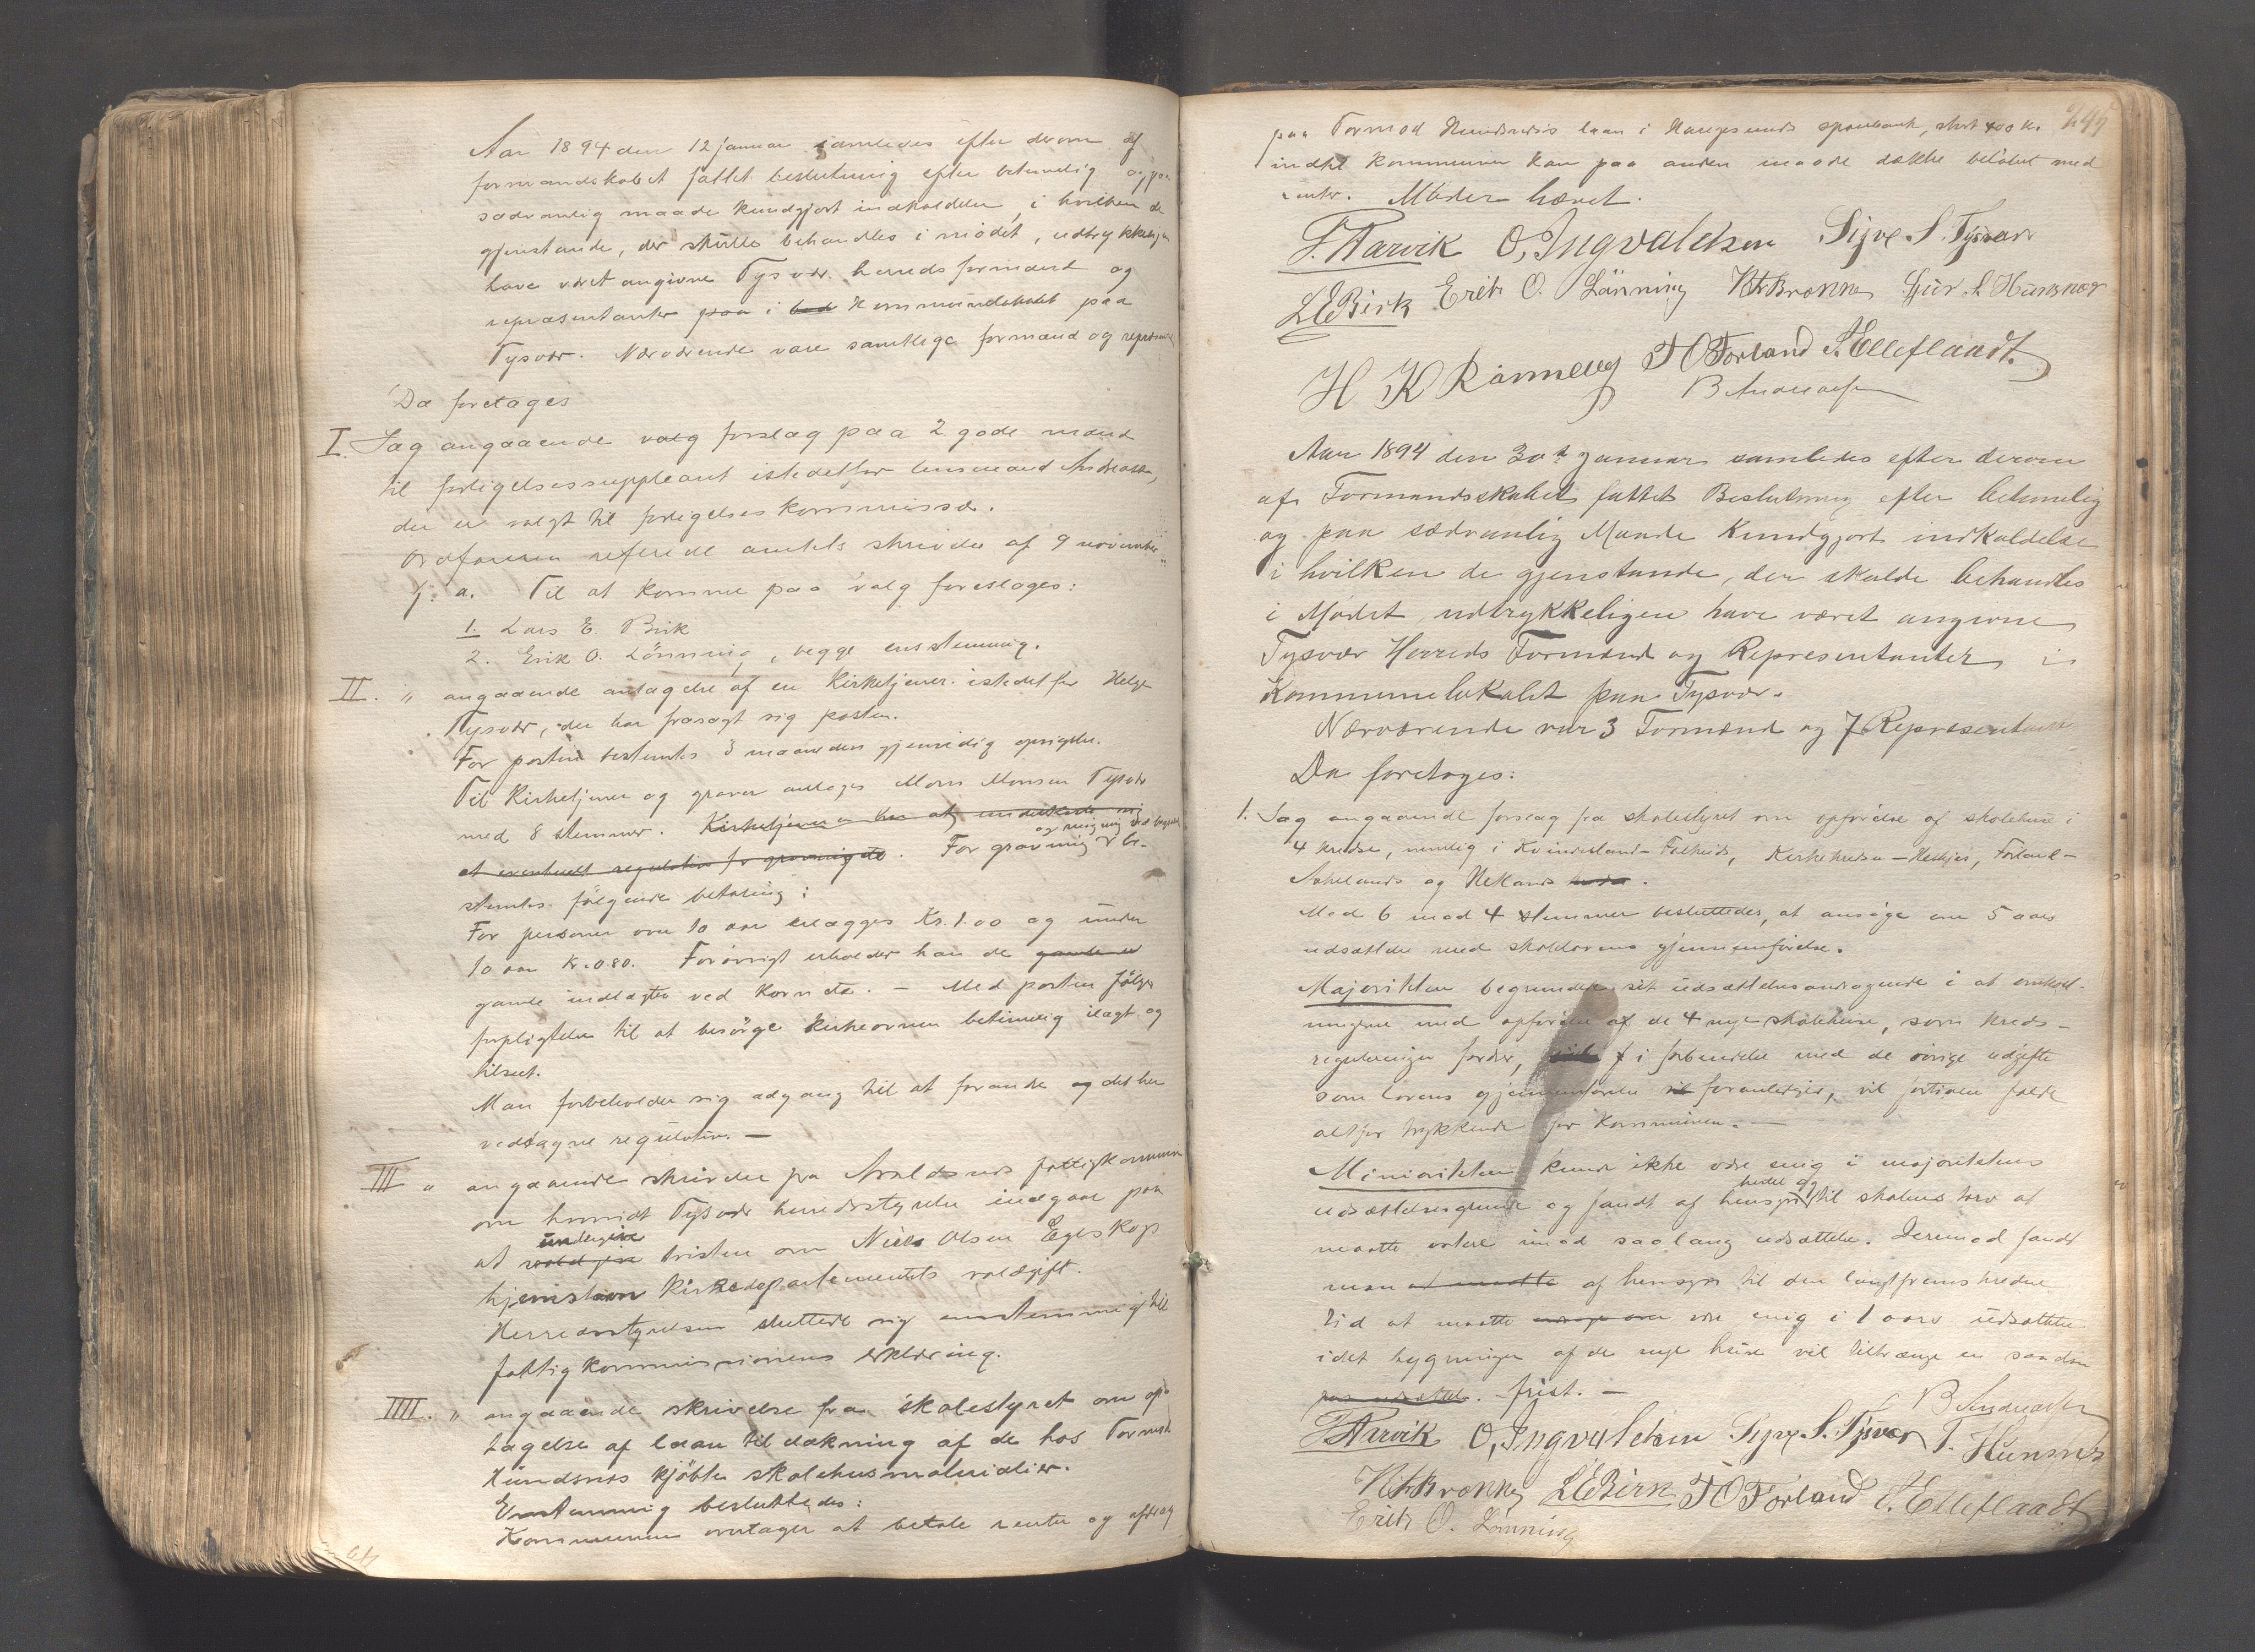 Aar 1894 den 12 januar samledes efter derom af
formandskabet fattet beslutning efter betimelig og paa
sædvanlig maade kundgjort indkaldelse, i hvilken de
gjenstande, der skulle behandles i mødet, udtrykkeligen
have været angivne Tysvær herreds formænd og
repræsentanter paa i Kommunelokalet paa
Tysvær. Nærværende vare samtlige formænd og repræsent
Da foretages
I. Sag angaaende valg forslag paa 2 gode mænd
til forligelsessuppleant istedetfor lensmand Andreasen,
der er valgt til forligelseskommissær.
Ordføreren refererede amtets skrivelse af 9 november
f. a. Til at komme paa valg foresloges:
1. Lars E. Birk
2. Erik O. Lönning, begge enstemmig.
II. " angaaende antagelse af en Kirketjener istedetfor Helge
Tysvær, der har frasagt sig posten.
For posten bestemtes 3 maaneders gjensidig opsigelse.
Til Kirketjener og graver antoges Mons Monsen Tysvær
med 8 stemmer. Kirketjeneren har at underkaste sig
og ringning ved begrav
et eventuelt regulativ for gravningen. For gravning be-
stemtes følgende betaling:
For personer over 10 aar erlægges Kr. 1.00 og under
10 aar Kr. 0.80. Forøvrigt erholder han de
gamle indtægter ved Korn etc. - Med posten følger
forpligtelse til at besørge kirkeovnen betimelig ilagt og
tilseet.
Man forbeholder sig adgang til at forandre og det her
vedtagne regulativ. -
III " angaaende skrivelse fra Avaldsnes fattigkommission
om hvorvidt Tysvær herredsstyrelse indgaar paa
undergive
at tvisten om Niels Olsen Egeskog
hjemstavn Kirkedepartementets voldgift.
Herredsstyrelsen sluttede sig enstemmig til
fattigkommissionens erklæring.
IIII. " angaaende skrivelse fra skolestyret om op-
tagelse af laan til dækning af de hos Tormod
Hundsnes kjöbte skolehusmaterialier.
Enstemmig besluttedes:
Kommunen overtager at betale renter og afdrag
249
paa Tormod Hundsnes's laan i Haugesunds sparebank, stort 400 kr.
indtil kommunen kan paa anden maade dække beløbet med
renter. Mødet hævet.
T. Aarvik O, Ingvaldsen Sjve S. Tysvær
LEBirk Erik O. Lönning
H K Rönnevig T O Førland S. Elleflaadt.
B Andreasen
Aar 1894 den 30te Januar samledes efter derom
af Formandsskabet fattet Beslutning efter betimelig
og paa sædvanlig Maade Kundgjort indkaldelse
i hvilken de gjenstande, der skulde behandles
i Mødet udtrykkeligen have været angivne
Tysvær Herreds Formænd og Representanter i
Kommunelokalet paa Tysvær.
Nærværende var 3 Formænd og 7 Repræsentanter
Da foretoges:
1. Sag angaaende forslag fra skolestyret om opførelse af skolehuse i
4 kredse, nemlig i Kvinderland-Falkeids, Kirkekredsen - Heskjes, Førland-
Aakelands og Hetlands .
Med 6 mod 4 stemmer besluttedes, at ansøge om 5 aars
udsættelse med skolelovens gjennemførelse.
Majoriteten begrunder sit udsættelsesandragende i at omkost-
ningerne med opførelse af de 4 nye skolehuse, som kreds-
reguleringen fordrer, i forbindelse med de øvrige udgifter
som lovens gjennemførelse foranlediger, vil fortiden falde
altfor trykkende for Kommunen. -
Minioriteten kunde ikke være enig i majoritetens
udsættelsesgrunde og fandt af hensyn til skolens tarv at
maatte votere imod saa lang udsættelse. Derimod fandt
man at maatte af hensyn til den langt fremskredne
tid at maatte være enig i 1 aars udsættelse
idet bygningen af de nye huse vil tiltrænge en saadan
frist. -
B Andreasen
T. Aarvik O, Ingvaldsen Sjve S. Tysvær T. Hunsnes
LEBirk T O Førland S. Elleflaadt
Erik O. Lönning